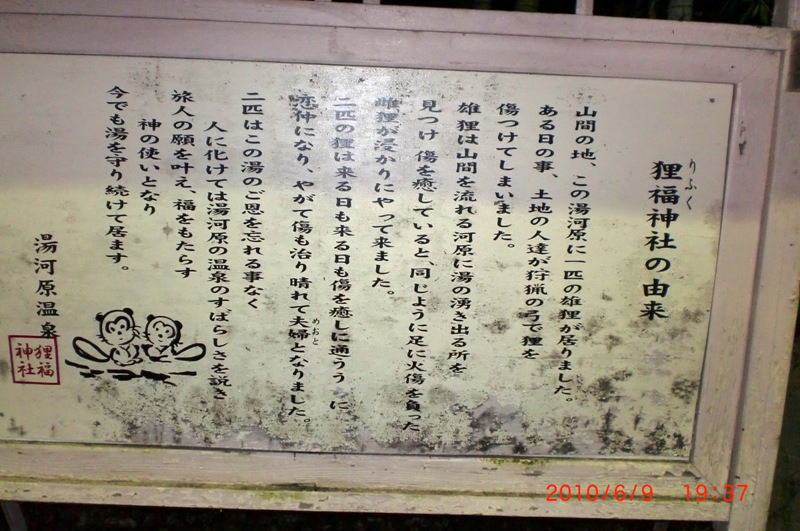 りふく
狸福神社の由来
山間の地、この湯河原に一匹の雄狸が居りました。
ある日の事、土地の人達が狩猟の弓で狸を
傷つけてしまいました。
雄狸は山間を流れる河原に湯の湧き出る所を
見つけ傷を癒していると、同じように足に火傷を負った
雌狸が浸かりにやって来ました。
二匹の狸は来る日も来る日も傷を癒しに通ううちに
恋仲になり、やがて傷も治り晴れて夫婦となりました。
めおと
二匹はこの湯のご恩を忘れる事なく
人に化けては湯河原の温泉のすばらしさを説き
旅人の願を叶え、福をもたらす
神の使いとなり
今でも湯を守り続けて居ます。
湯河原温泉
狸福
神社
2010/6/9 19:37